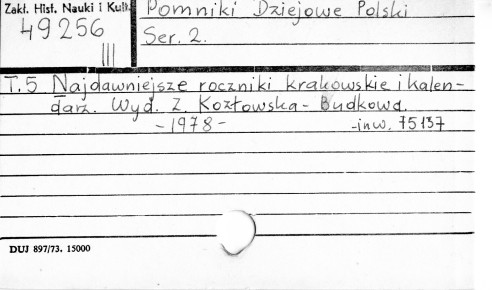 Zakł. Hist. Nauki i Kult.
49256
III
Pomniki Dziejowe Polski
Ser. 2.
T.5 Najdawniejsze roczniki krakowskie i kalen-
darz. Wyd. Z. Kozłowska-Budkowa.
-1978-
-inw. 75137
DUJ 897/73. 15000